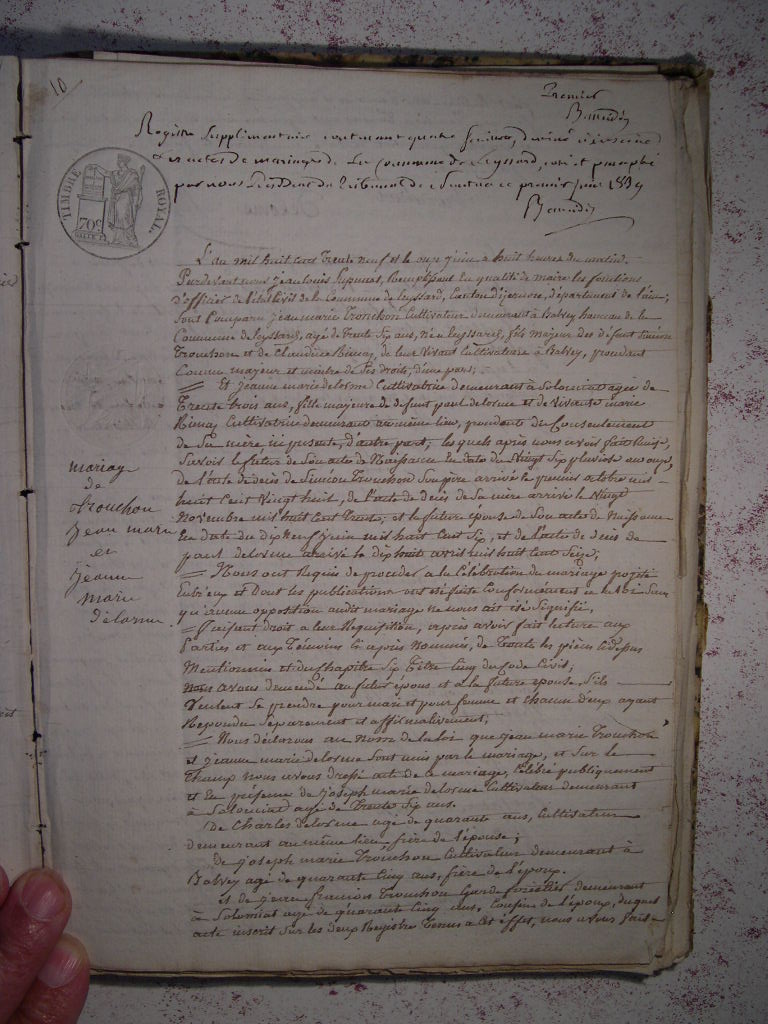 10
Premier
Baudin
Registre supplimentaire contenant quatre feuillets, destiné à inscrire
les actes de mariages de la Commune de Leyssard, coté et paraphé
par nous Président du Tribunal de Nantua ce premier juin 1839
Baudin
TIMBRE ROYAL
70c
L'an mil huit cent trente neuf et le onze juin à huit heures du matin.
Pardevant nous jean louis Remplissant en qualité de maire les fonctions
d'officier de l'état civil de la Commune de leyssard, Canton d'izernore, département de l'ain;
sont Comparu jean marie Trouchon Cultivateur demeurant à Balvey hameau de la
Commune de leyssard, agé de trente six ans, né a leyssard, fils majeur des défunt Simeon
Trouchon et de Claudine Bimay, de leur vivant Cultivateurs à Balvey, procédant
Comme majeur et maitre de ses droits, d'une part;
= Et jeanne marie delorme Cultivatrice demeurant à Solomiat agée de
Trente trois ans, fille majeure de defunt paul delorme et de vivante marie
Bimay Cultivatrice demeurant au même lieu, procedante du Consentement
de Sa mère ici présente, d'autre part; les quels après nous avoir fait Remise,
Savoir le futur de Son acte de Naissance en date du vingt Six pluviose an onze,
de l'acte de décès de Simeon Trouchon Son père arrivé le premier octobre mil
huit Cent vingt huit, de l'acte de décès de Sa mère arrivé le vingt
Novembre mil huit Cent Trente; et la future épouse de Son acte de Naissance
En date du dix Neuf juin mil huit Cent Six, et de l'acte de décès de
paul delorme arrivé le dix huit avril mil huit Cent Seize;
= Nous ont Requis de procéder a la Célébration du mariage projeté
Entr'eux et dont les publications ont été faite Conformément a la loi Sans
qu'aucune opposition audit mariage ne nous ait été Signifiée,
= faisant droit a leur Requisition, après avoir fait lecture aux
Parties et aux Témoins Ci après Nommés, de Toutes les pièces Ci dessus
Mentionnées et du Chapitre Six Titre Cinq du Code Civil;
Nous avons demandé au futur époux et a la future épouse, s'ils
veulent Se prendre pour mari et pour femme et chacun d'eux ayant
Repondu Séparément et affirmativement;
= Nous déclarons au Nom de la loi que jean marie Trouchon
et jeanne marie delorme Sont unis par le mariage, et Sur le
Champ nous avons dressé acte de ce mariage, Célébré publiquement
et En présence de joseph marie delorme Cultivateur demeurant
à Solomiat agé de Trente Six ans.
de Charles delorme agé de quarante ans, Cultivateur
demeurant au même lieu, frère de l'épouse;
de joseph marie Trouchon Cultivateur demeurant à
Balvey agé de quarante Cinq ans, frère de l'époux.
et de françois Trouchon Garde forestier demeurant
à Solomiat agé de quarante Cinq ans, Cousin de l'époux, duquel
acte inscrit Sur les deux Registre Tenus a Cet effet, nous avons fait
mariage
de
Trouchon
jean marie
et
jeanne
marie
delorme